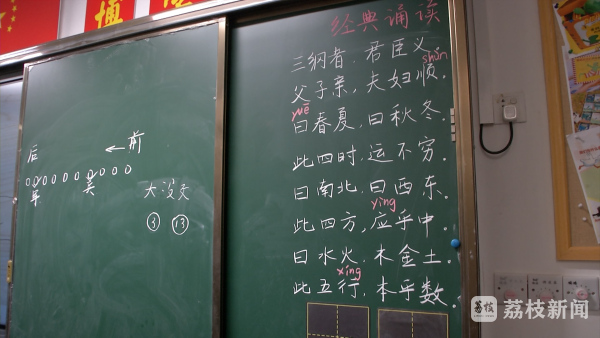 后
← 前
军
英
大没交
③ ⑬
经典诵读
三纲者,君臣义,
shùn
父子亲,夫妇顺。
yuē
曰春夏,曰秋冬。
此四时,运不穷。
曰南北,曰西东。
yìng
此四方,应乎中。
曰水火,木金土。
xíng
此五行,本乎数。
荔枝
荔枝新闻